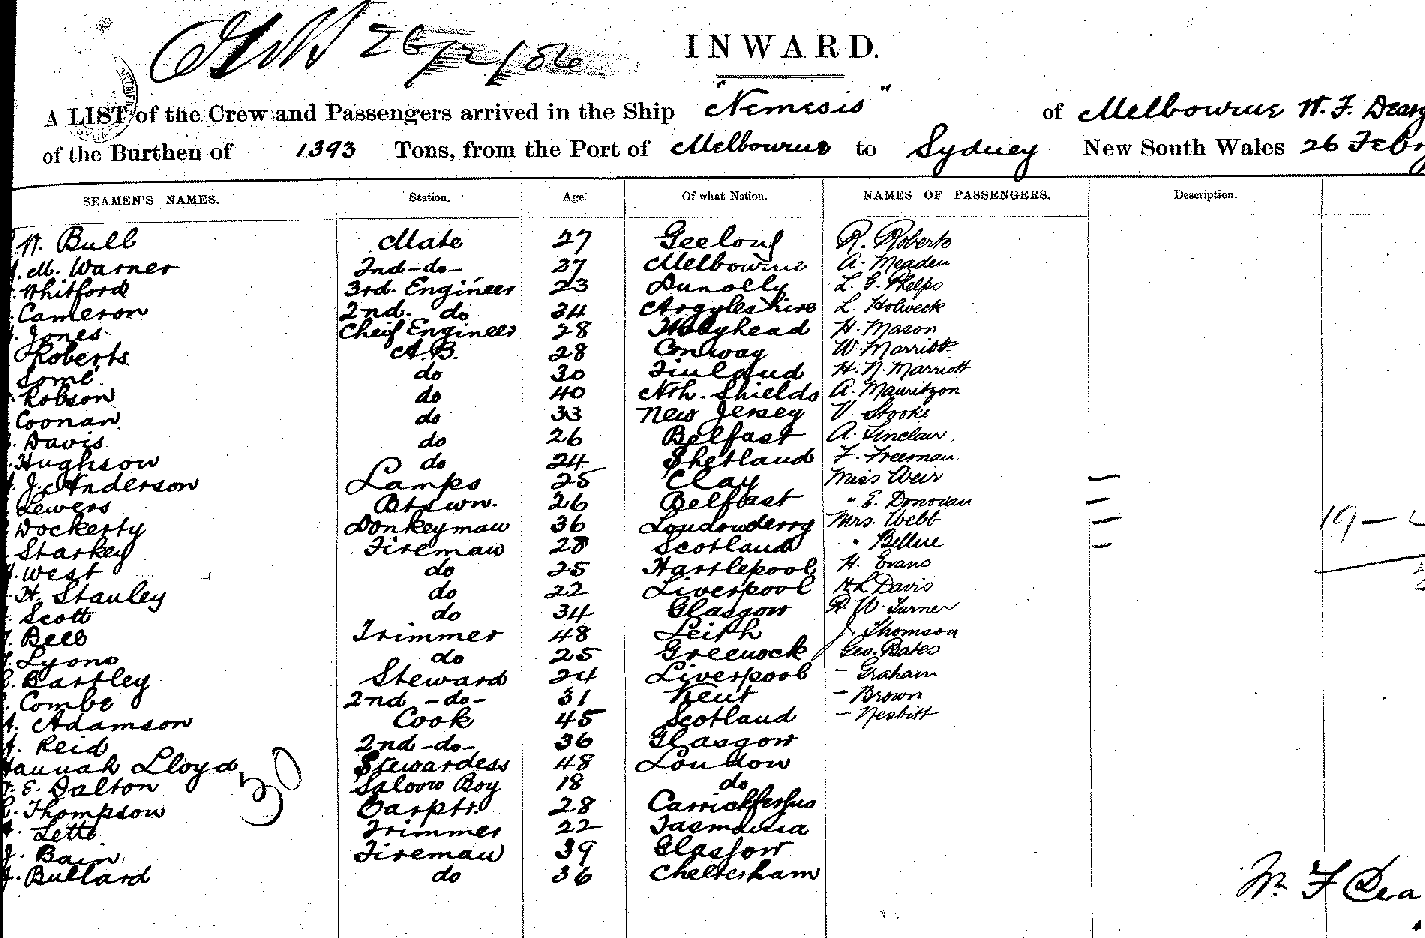 26/2/86
INWARD.
A LIST of the Crew and Passengers arrived in the Ship "Nemesis" of Melbourne W. F. Dea
of the Burthen of 1393 Tons, from the Port of Melbourne to Sydney New South Wales 26 Feb
SEAMEN'S NAMES. Station. Age Of what Nation. NAMES OF PASSENGERS. Description.
W. Bull Mate 27 Geelong R. Roberts
M. Warner 2nd -do- 37 Melbourne A. Meaden
Whitford 3rd. Engineer 23 Dunolly L. G. Phelps
Cameron 2nd. do 34 Argyleshire L. Holweck
Jones Cheif Engineer 28 Holyhead H. Mason
Roberts A.B. 28 Conway W Marriott
Some do 30 Finland H. N. Marriott
Robson do 40 Nth. Shields A. Mauritzon
Coonan do 33 New Jersey V. Stooke
Davis do 26 Belfast A. Sinclair
Hughson do 24 Shetland F. Freeman
J. Anderson Lamps 25 Clay Miss Weir —
Lewers Btswn. 26 Belfast " E. Donovan —
Dockerty Donkeyman 36 Londonderry Mrs. Webb — 19 –
Starkey Fireman 28 Scotland " Bellere —
West do 25 Hartlepool H. Evans
H. Stanley do 22 Liverpool Davis
Scott do 34 Glasgow R. W. Turner
Bell Trimmer 48 Leith J. Thomson
Lyons do 25 Greenock Geo. Bates
Bartley Steward 24 Liverpool – Graham
Combe 2nd -do- 31 Kent – Brown
Adamson Cook 45 Scotland – Nesbitt
Reid 2nd -do- 36 Glasgow
Hannah Lloyd Stewardess 48 London
30
E. Dalton Saloon Boy 18 do
Thompson Carptr. 28 Carrickfergus
Letts Trimmer 22 Tasmania
J. Bain Fireman 39 Glasgow
J. Bullard do 36 Cheltenham
Wm F Dea